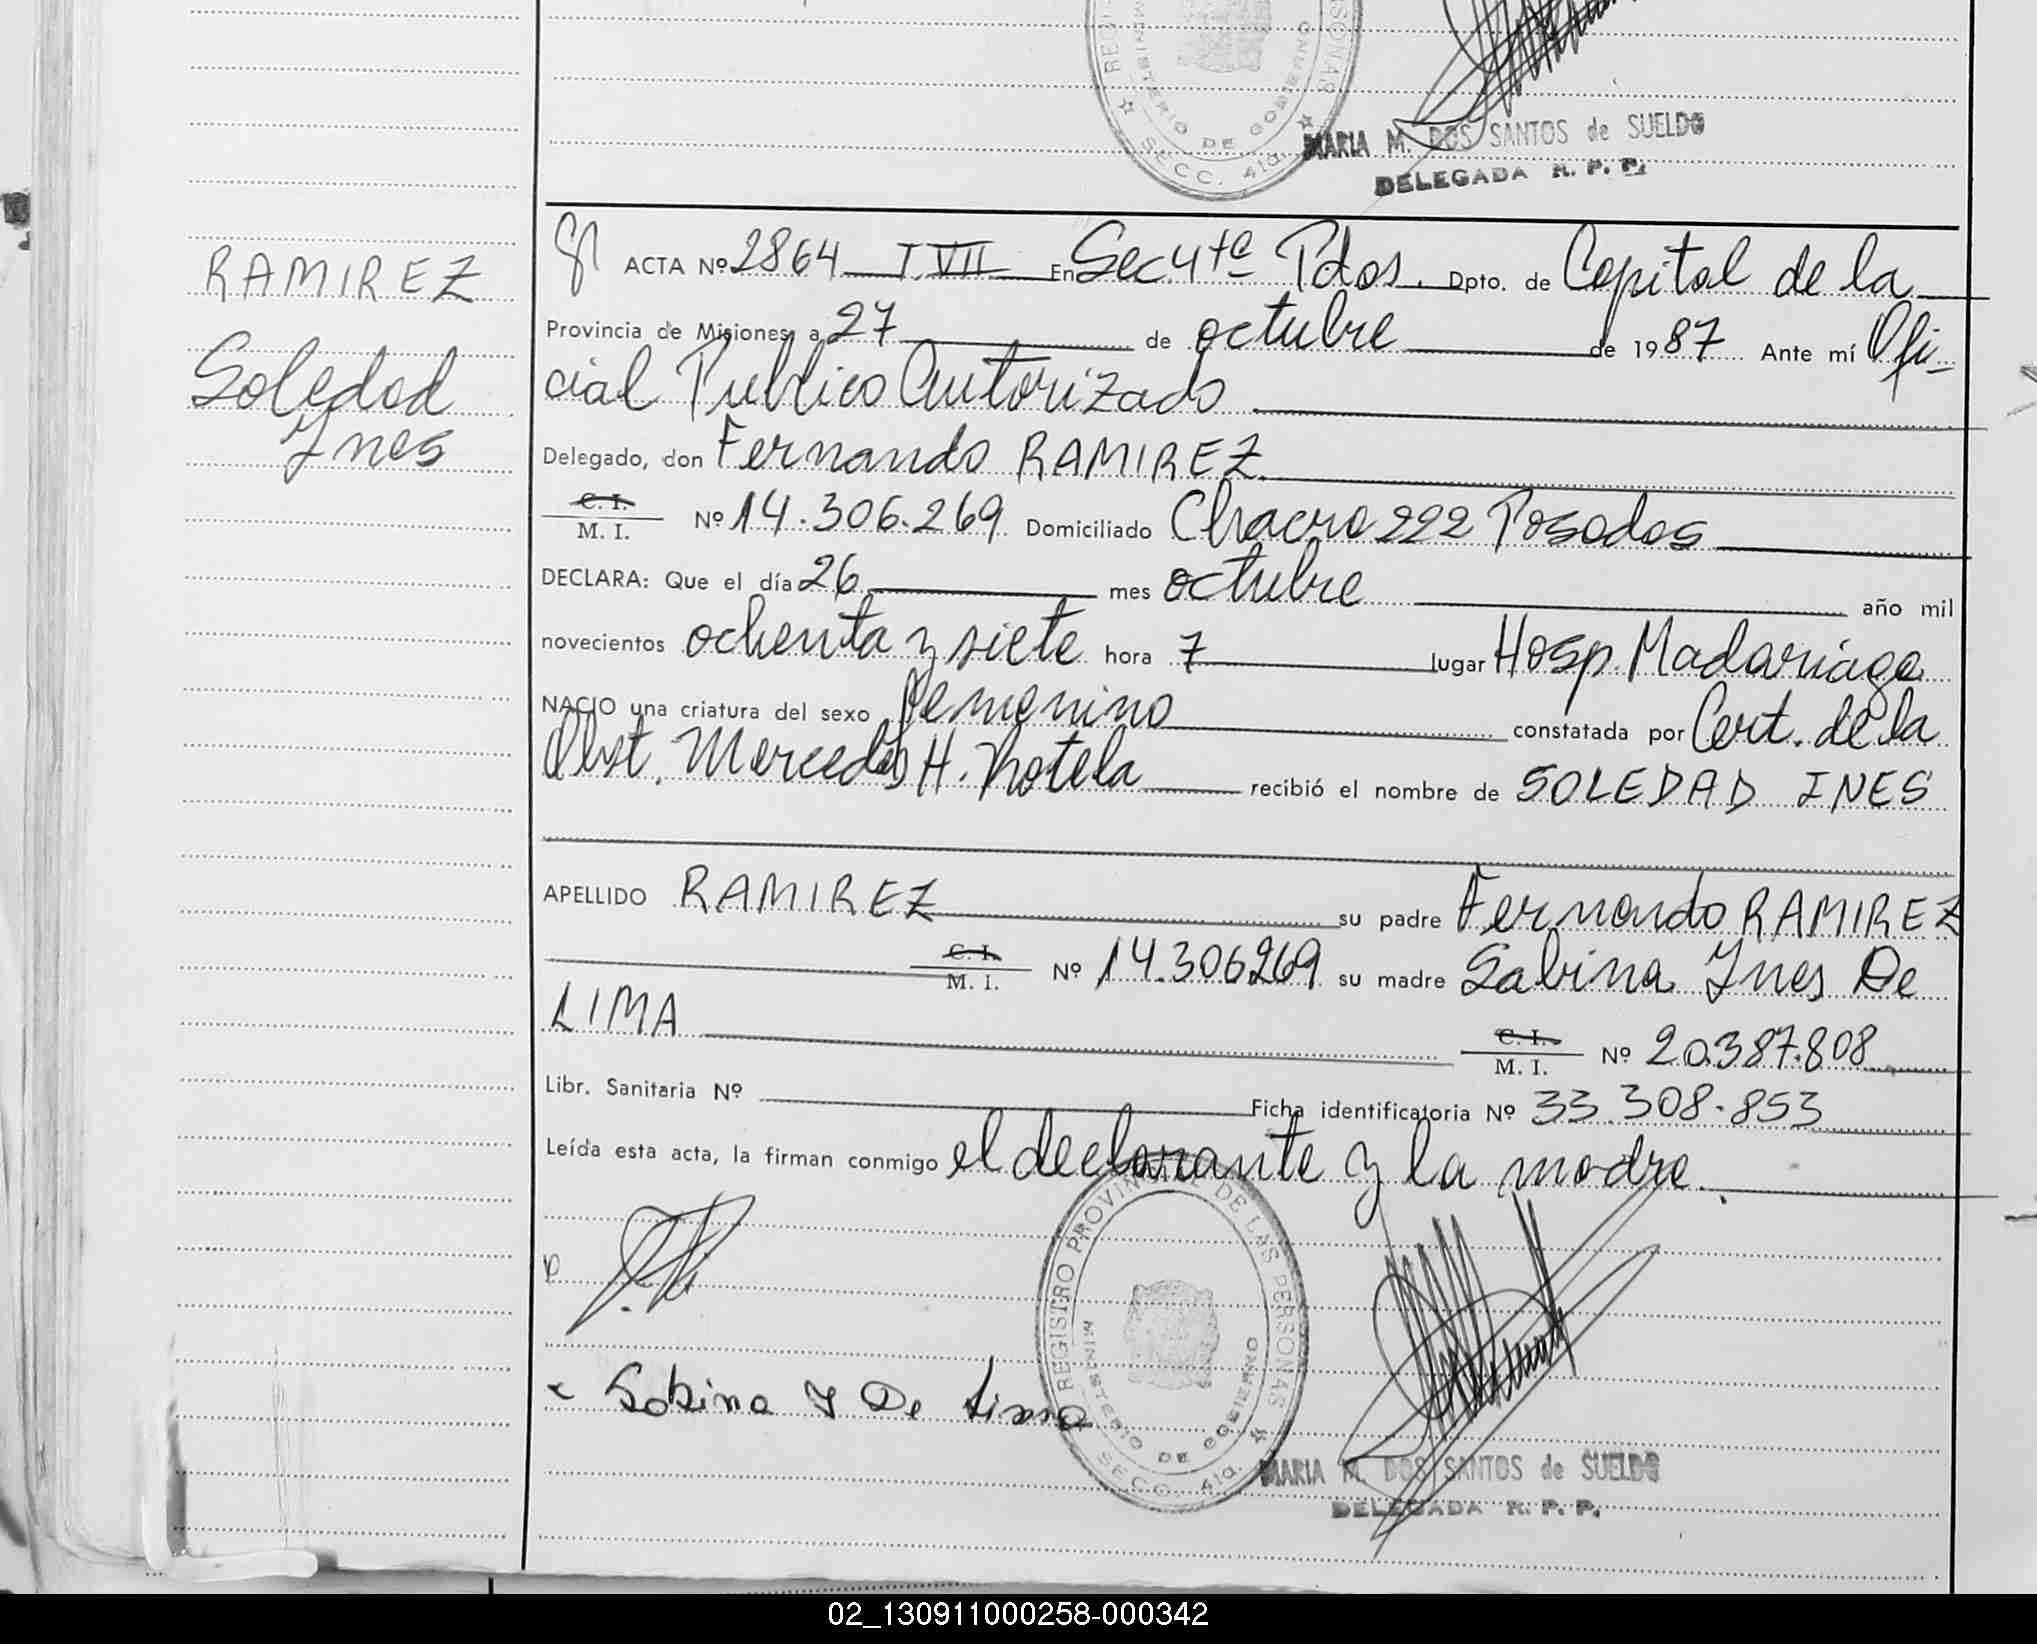 REGIS
SONAS
MINISTERIO DE GOBIERNO
SECC. 4ta.
MARIA M. DOS SANTOS de SUELDO
DELEGADA R. P. P.
RAMIREZ
Soledad
Ynes
ACTA Nº 2864 T VII En Sec. 4ta Pdas. Dpto. de Capital de la
Provincia de Misiones a 27 de octubre de 1987 Ante mí Ofi-
cial Publico Autorizado
Delegado, don Fernando RAMIREZ
C. I.
M. I. Nº 14.306.269 Domiciliado Chacra 222 Posadas
DECLARA: Que el día 26 mes octubre año mil
novecientos ochenta y siete hora 7 lugar Hosp. Madariaga
NACIO una criatura del sexo femenino constatada por Cert. de la
Obst. Mercedes H. Rotela recibió el nombre de SOLEDAD INES
APELLIDO RAMIREZ su padre Fernando RAMIREZ
C. I.
M. I. Nº 14.306269 su madre Sabina Ynes De
LIMA C. I.
M. I. Nº 20.387.808
Libr. Sanitaria Nº Ficha identificatoria Nº 33.308.853
Leída esta acta, la firman conmigo el declarante y la madre.
REGISTRO PROVINCIAL DE LAS PERSONAS
MINISTERIO DE GOBIERNO
SECC. 4ta.
Sabina Y De Lima
MARIA M. DOS SANTOS de SUELDO
DELEGADA R. P. P.
02_130911000258-000342